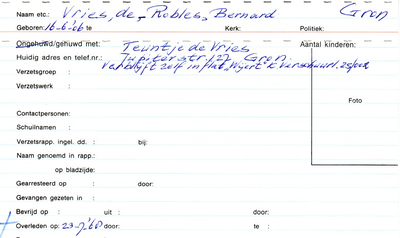 Naam etc.: Vries, de, Robles, Bernard Gron
Geboren: 16-6-'06 te Kerk: Politiek:
Ongehuwd/gehuwd met: Teuntje de Vries Aantal kinderen:
Huidig adres en telef.nr.: Jupiterstr. 127, Gron.
Verzetsgroep : verblijft zelf in flat,
Verzetswerk :
Foto
Contactpersonen:
Schuilnamen :
Verzetsrapp. ingel. dd. : bij:
Naam genoemd in rapp.:
op bladzijde:
Gearresteerd op : door:
Gevangen gezeten in :
Bevrijd op : uit : door:
Overleden op: 23-7-'60 door: te :